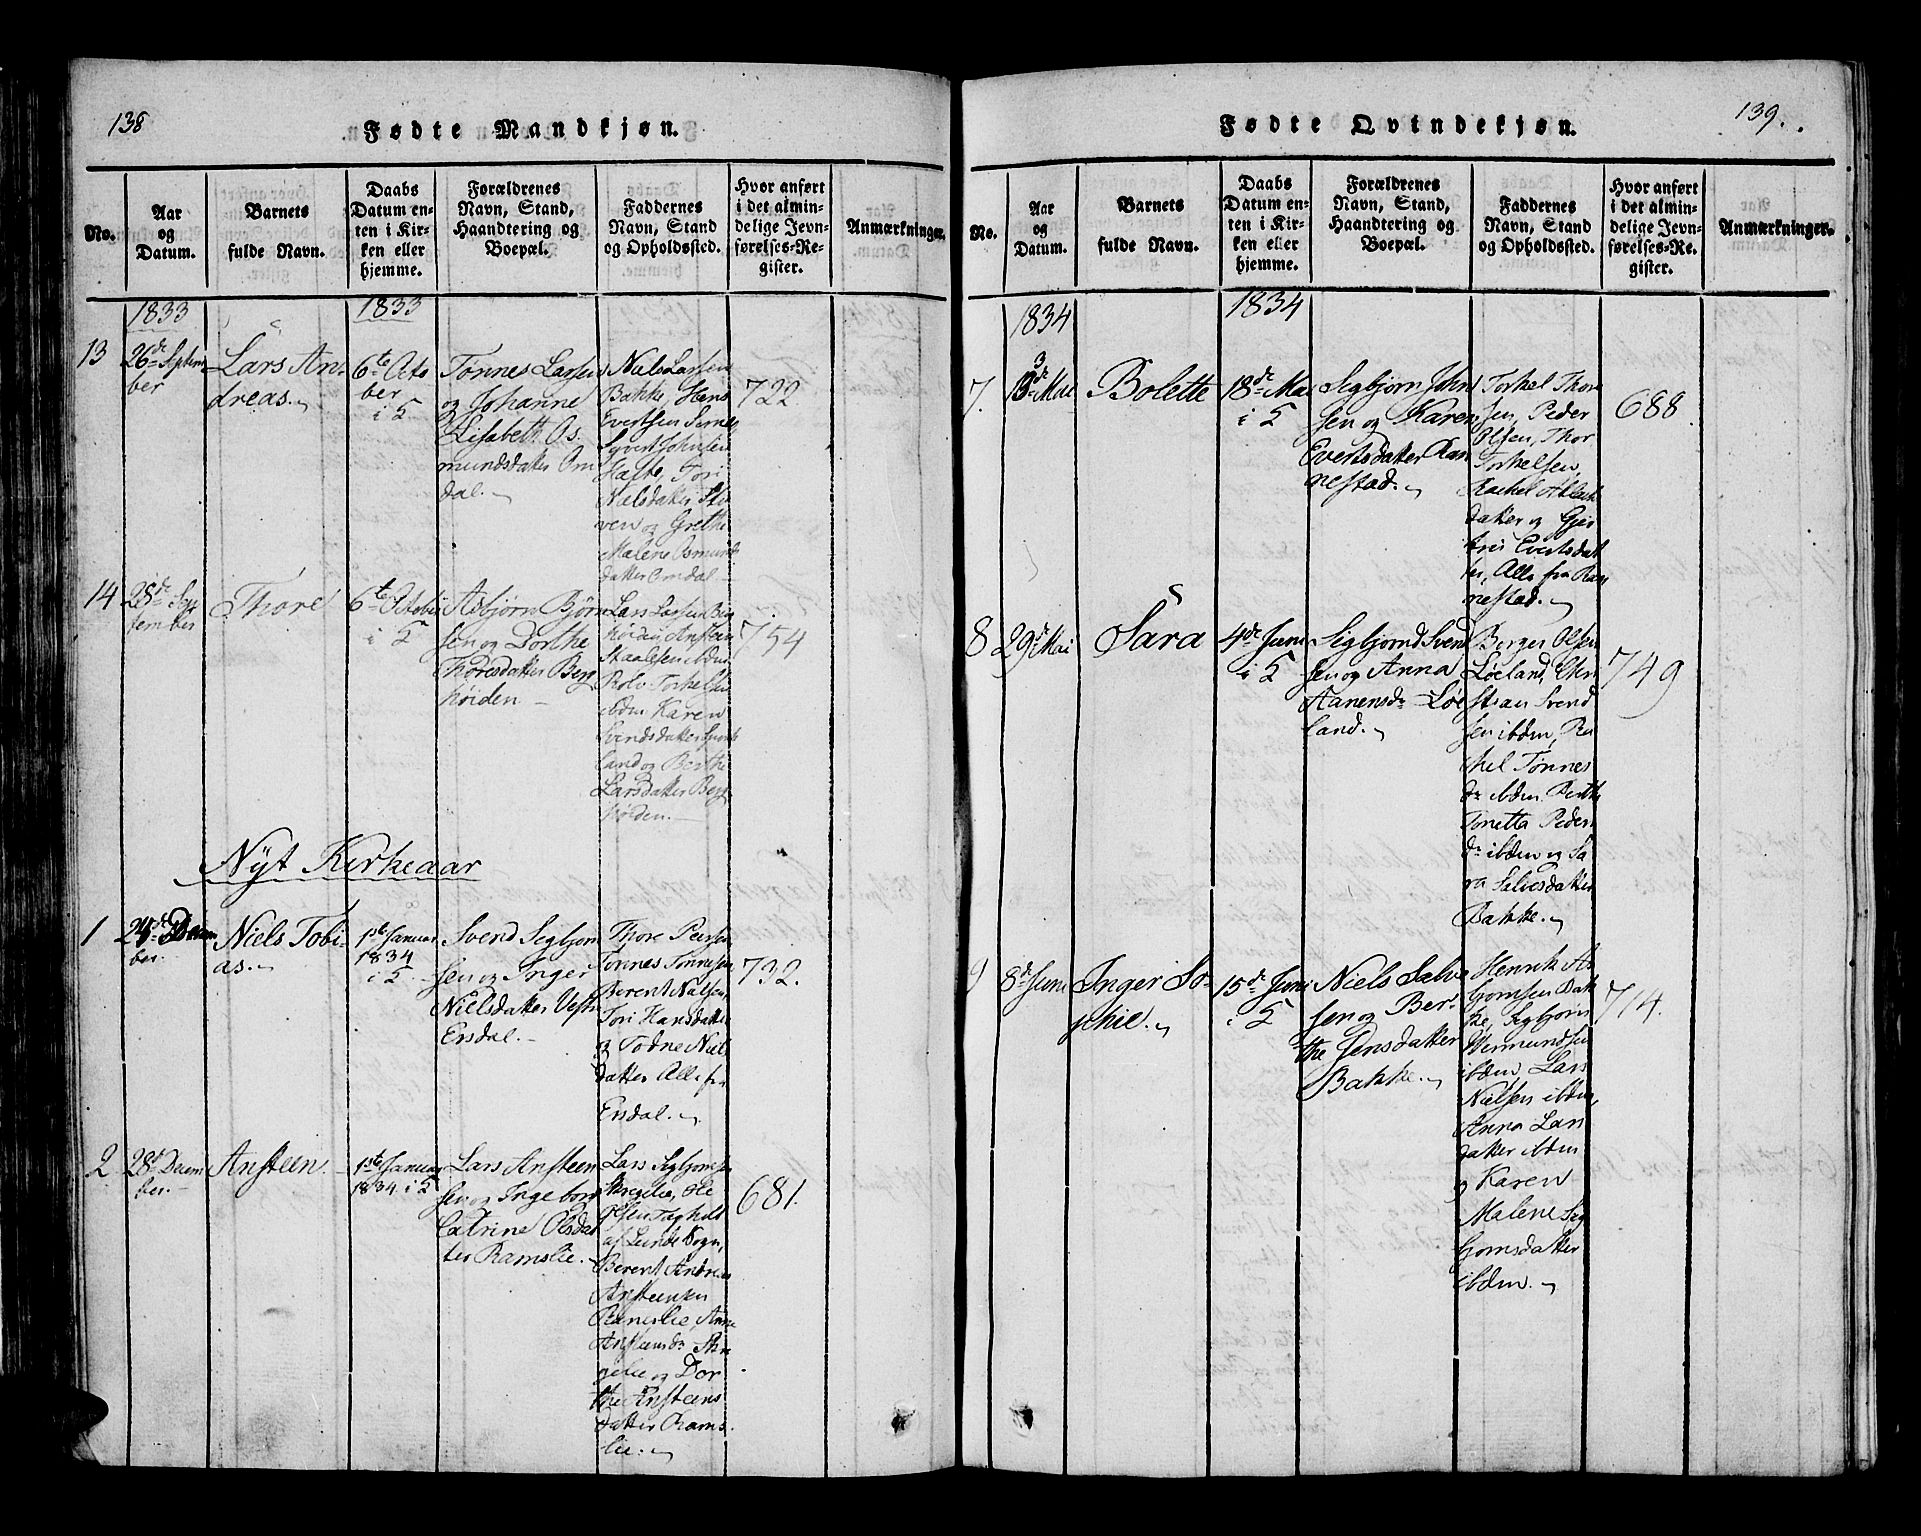 138
Fødte Mandkjøn.
No.
Aar
og
Datum.
Barnets
fulde Navn.
Daabs
Datum en-
ten i Kir-
ken eller
hjemme.
Forældrenes
Navn, Stand,
Haandtering og
Boepæl.
Faddernes
Navn, Stand
og Opholdssted.
Hvor anført
i det almin-
delige Jevn-
førelses-Re-
gister.
Anmærkninger.
1833
1833
13
26de Septem
ber
Lars An-
dreas.
6te Octo
ber
i K
Tønnes Larsen
og Johanne
Lisabeth Os.
mundsdatter Om
dal.
Niels Larsen
Bakke, Hans
Evertsen
Syvert Johnsen
Tori
Nielsdatter
ven og Grethe
Malene Osmunds
datter Omdal
722.
14
28de Sep
tember
Thore
6te Octobr
i K
Asbjørn Bjørn
sen og Dorthe
Thoresdatter Berg
høiden
Lars Larsen Berg
høiden, Ansteen
Staalesen ibdm
Rolv Torkelsen
ibdm Karen
Svendsdatter
land og Berthe
Larsdatter Berg
høiden.
754
Nyt Kirkeaar
1
24de Decem
ber.
Niels Tobi-
as.
1ste Januar
1834
i K
Svend Segbjørn
sen og Inger
Nielsdatter Vestr
Ersdal.
Thore Peersen
Tønnes Tønnesen
Berent Nielsen,
Tori Hansdatter
og Todne Niels
datter Alle fra
Ersdal.
732.
2
28de Decem
ber.
Ansteen
1ste Januar
1834 i K
Lars Ansteen
sen og Ingeborg
Catrine Olsdat
ter Ramslie.
Lars Segbjørnsen
Skregelie, Ole
Olsen
af Lunde Sogn,
Berent Andreas
Ansteensen
Ramslie, Anne
Ansteensdr Skre
gelie og Dor
the Ansteens
datter Rams
lie.
681.
139.
Fødte Qvindekjøn.
No.
Aar
og
Datum.
Barnets
fulde Navn.
Daabs
Datum en-
ten i Kir-
ken eller
hjemme.
Forældrenes
Navn, Stand,
Haandtering og
Boepæl.
Faddernes
Navn, Stand
og Opholdssted.
Hvor anført
i det almin-
delige Jevn-
førelses-Re-
gister.
Anmærkninger.
1834
1834
7.
13de Mai
Bolette
18de Mai
i K
Segbjørn John
sen og Karen
Evertsdatter Ran
nestad.
Torkel Thor
sen, Peder
Olsen, Thor
Torkelsen,
Rachel Atlach
datter og Gjer
trui Evertsdat
ter, Alle fra Ran
nestad.
688
8
29de Mai
Sara
4de Juni
i K
Segbjørnd Svend
sen og Anna
Aanensdr Løe
land.
Berger Olsen
Løeland, Chri
stian Svend
sen ibdm, Ra
chel Tønnes
dr ibdm Berthe
Tonetta Peders
dr ibdm og Sa
ra Salvesdatter
Bakke.
749
9
8de Juni
Inger So-
phie.
15de Juni
i K
Niels Salve
sen og Ber-
the Jensdatter
Bakke.
Henrik As
bjornsen Bak
ke, Segbjorn
Wermundsen
ibdm, Lars
Nielsen ibdm,
Anna Lars
datter ibdm
og Karen
Malene Seg
bjornsdatter
ibdm.
714.